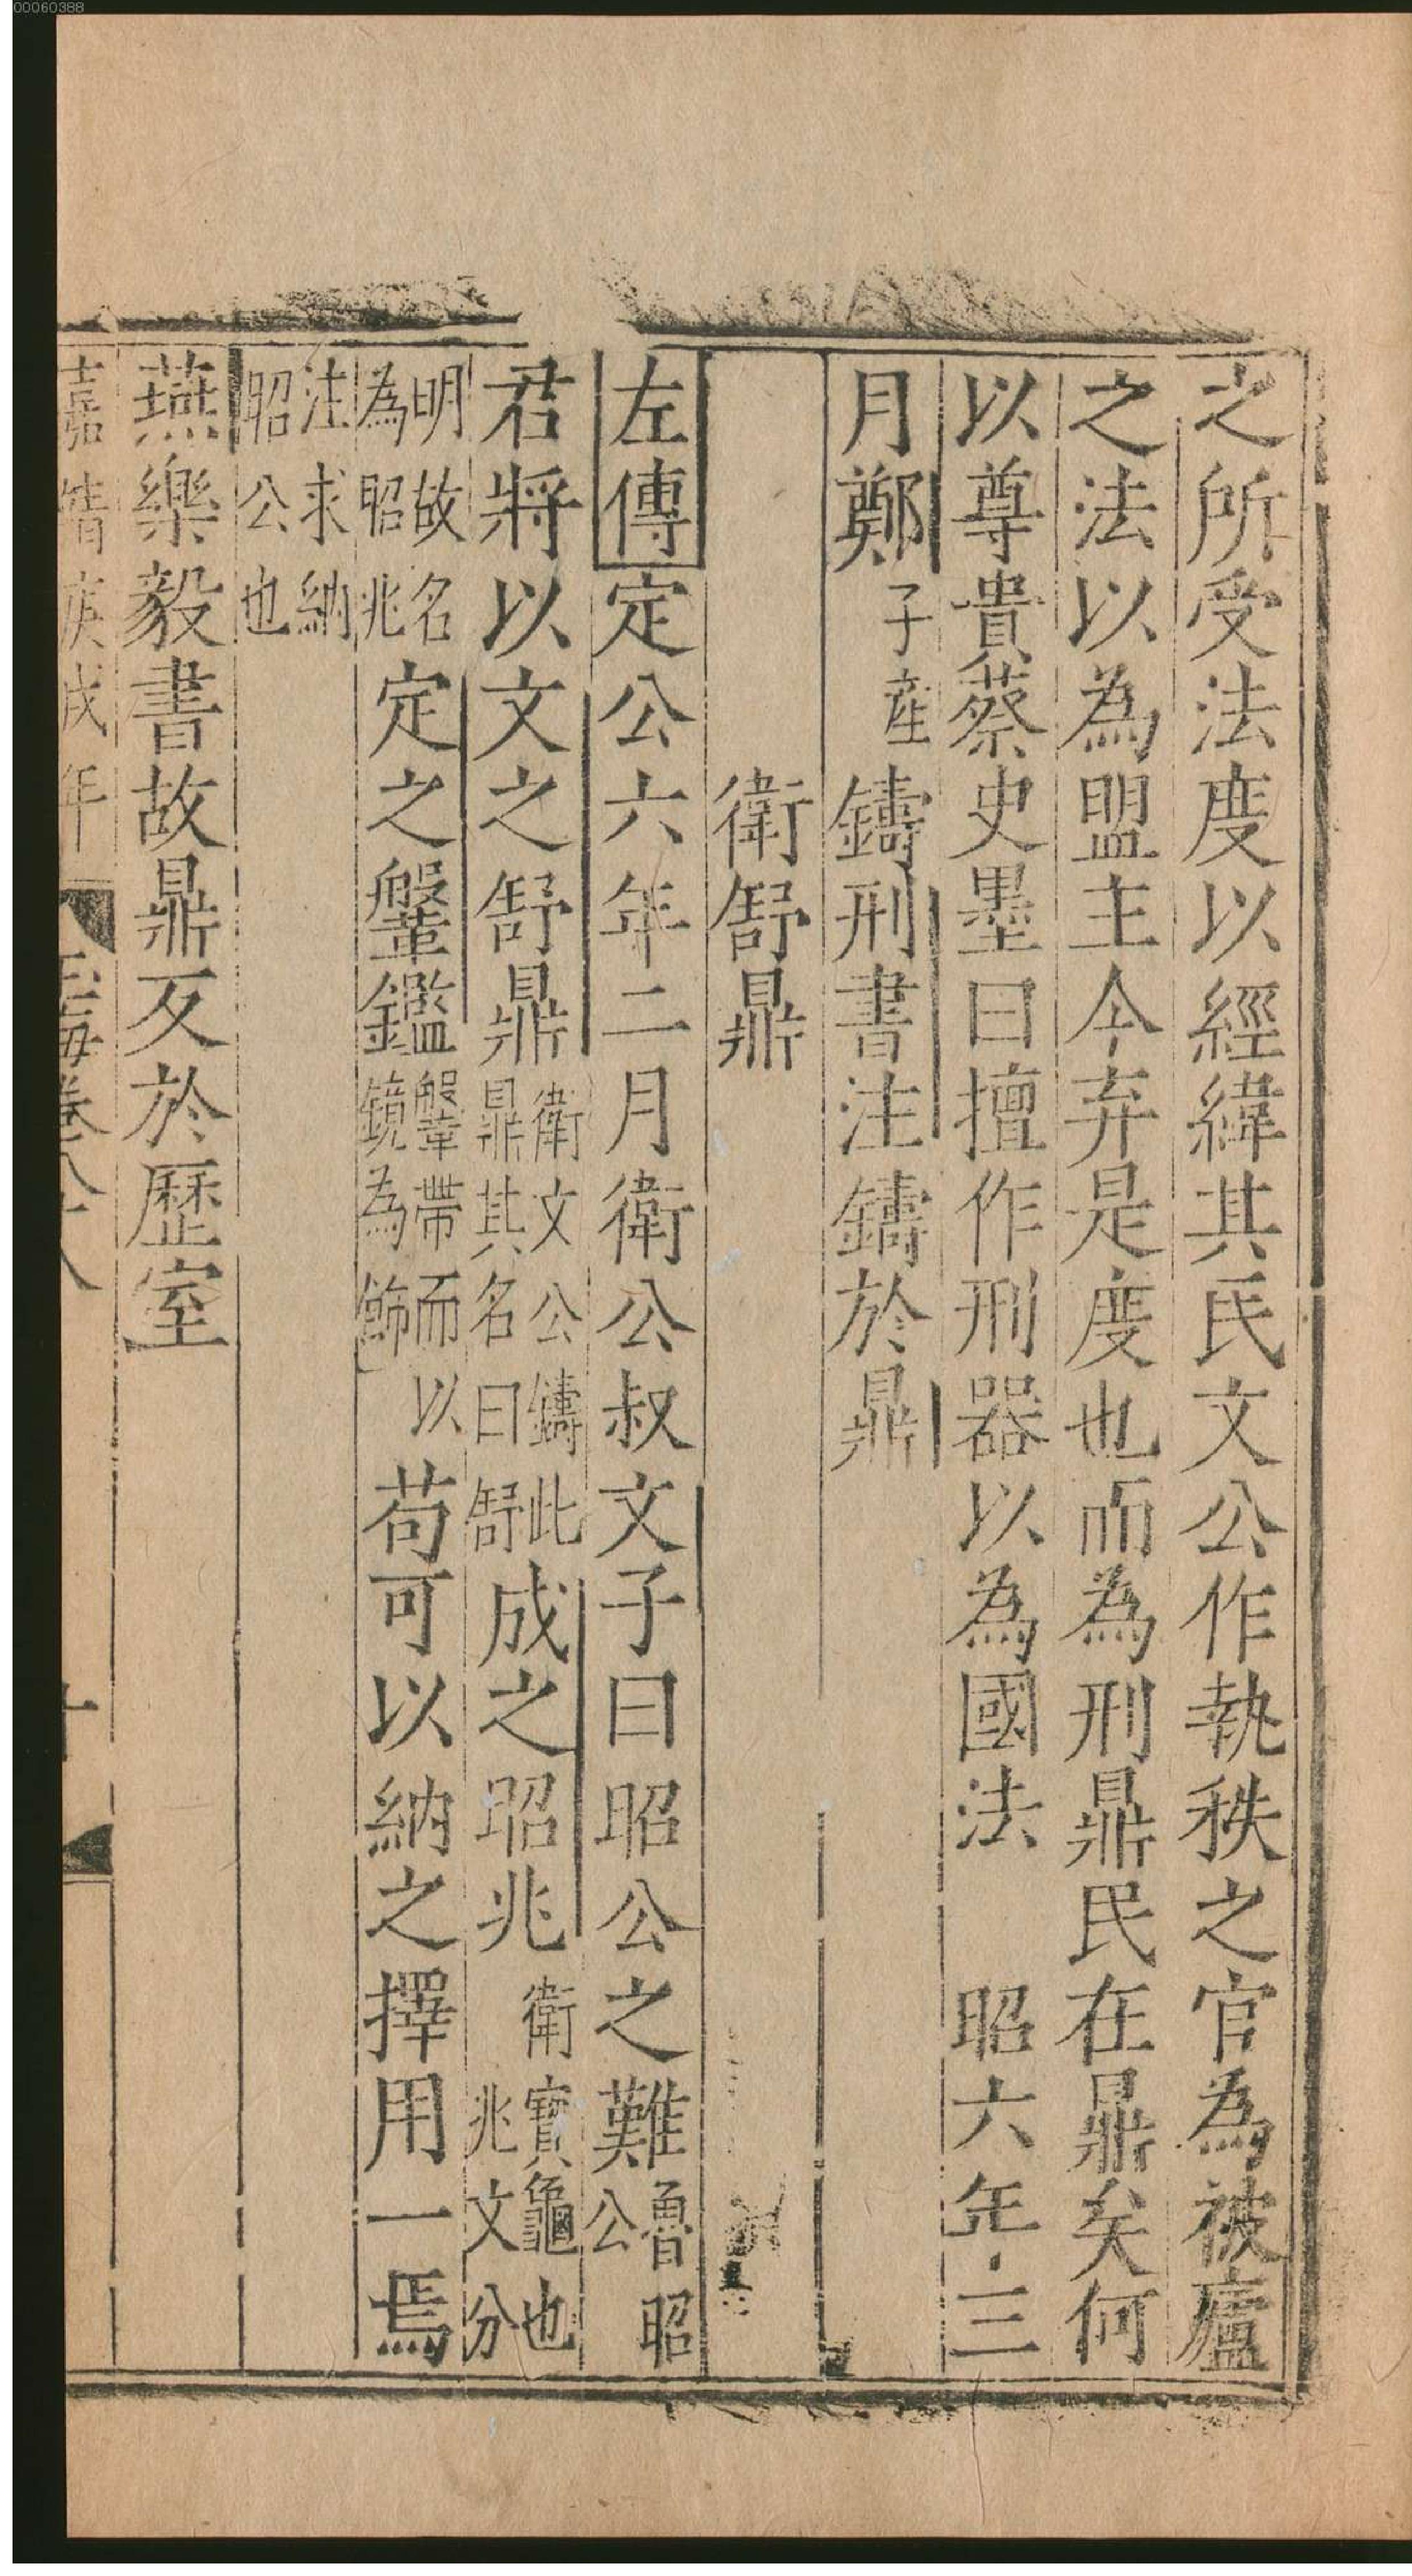 00060388
之所受法度以經緯其民文公作執秩之官為被廬
之法以為盟主今弃是度也而為刑鼎民在鼎矣何
以尊貴蔡史墨曰擅作刑器以為國法 昭六年三
月鄭子産鑄刑書注鑄於鼎
衛舒鼎
左傳定公六年二月衛公叔文子曰昭公之難魯昭公
君將以文之舒鼎衛文公鑄此鼎其名曰舒成之昭兆衛寶龜也兆文分
明故名為昭兆定之鞶鑑鞶帶而以鏡為飾苟可以納之擇用一焉
注求納昭公也
燕樂毅書故鼎反於歷室
嘉靖庚戌年 玉海卷八十八 十